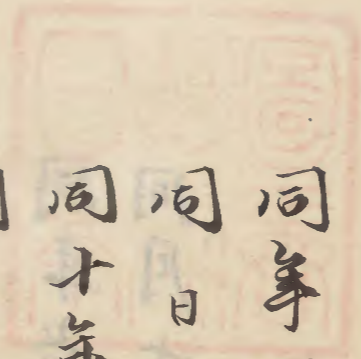 同年
同日
同十年